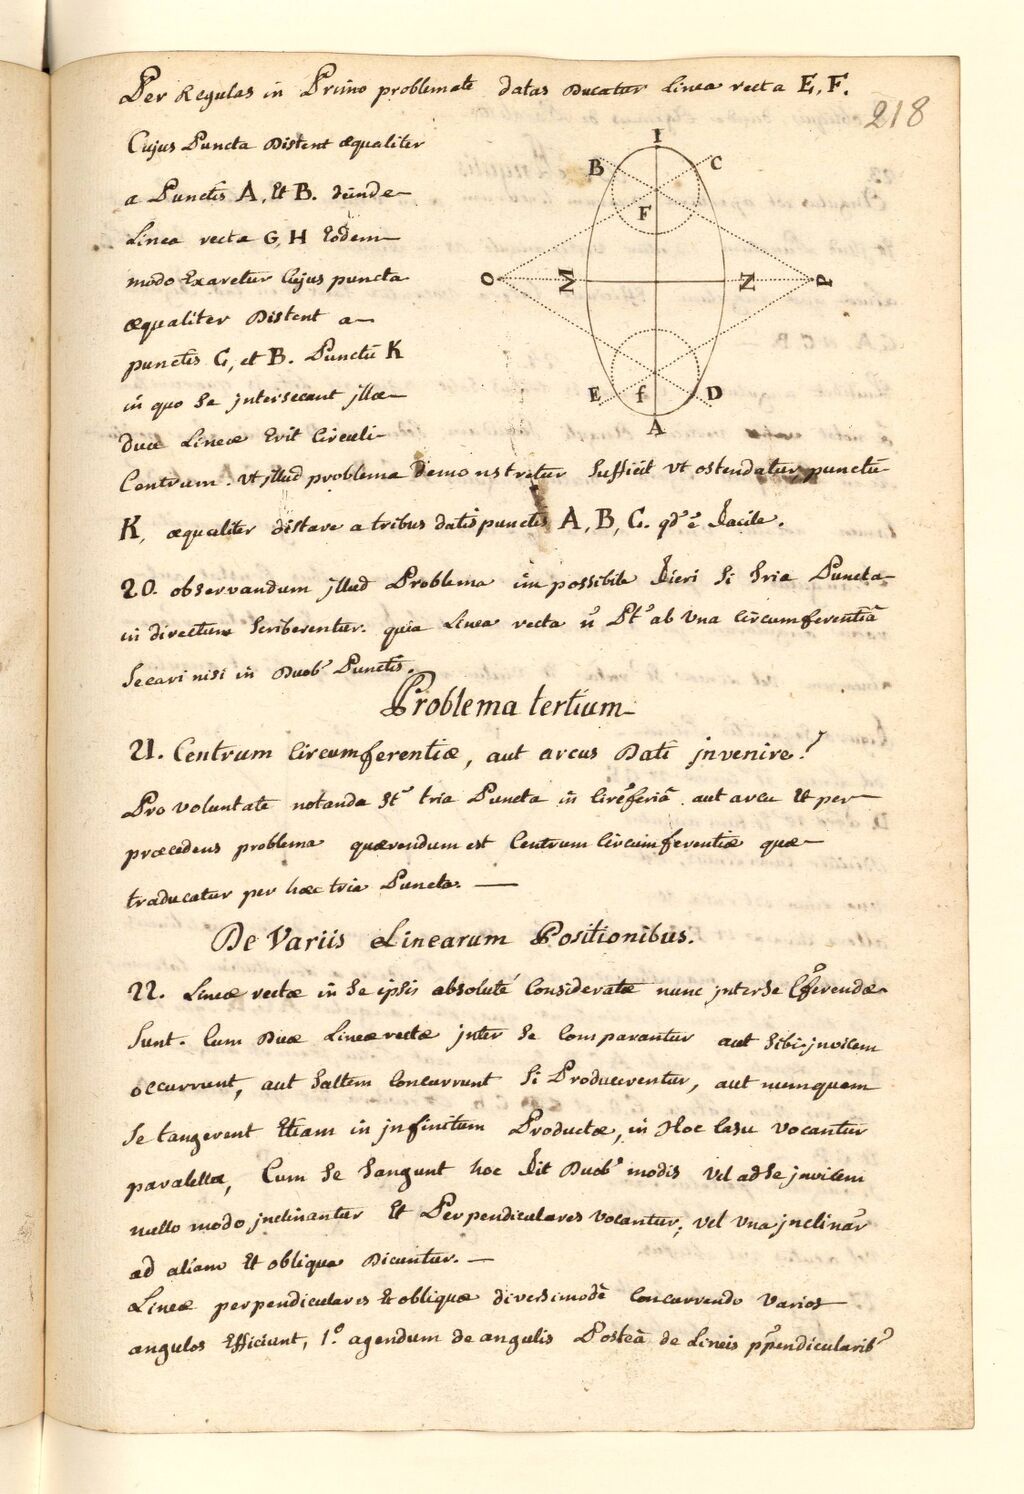 Per Regulas in Primo problemate datas Ducatur linea recta E, F.
218
Cujus Puncta Distent æqualiter
a Punctis A, Et B. deinde
Linea recta G, H Eodem
modo Exaretur Cujus puncta
æqualiter Distent a
punctis C, et B. Punctũ K
in quo Se jntersecant jllæ
duæ Lineæ Erit Circuli
Centrum. Vt jllud problema demonstretur Sufficit Vt ostendatur punctũ
K, æqualiter distare a tribus datis punctis A, B, C. qd' ẽ facile.
I
B
C
F
O
M
N
P
E
f
D
A
20. observandum jllud Problema impossibile fieri Si tria Puncta
in directum Scriberentur. quia Linea recta ñ Pt' ab Vna Circumferentiâ
Secari nisi in Duob' Punctis.
Problema tertium
21. Centrum Circumferentiæ, aut arcus Dati jnvenire?
Pro voluntate notanda St' tria Puncta in Circ'feriâ aut arcu Et per
præcedens problema quærendum est Centrum Circumferentiæ quæ
traducatur per hæc tria Puncta.
De Variis Linearum Positionibus.
22. Lineæ rectæ in Se ipsis absolutè Consideratæ nunc jnter Se C'ferendæ
Sunt. Cum Duæ Lineæ rectæ jnter Se Comparantur aut Sibi jnvicem
occurrunt, aut Saltem Concurrunt Si Producerentur, aut numquam
Se tangerent Etiam in jnfinitum Productæ, in Hoc Casu Vocantur
paralellæ, Cum Se tangunt hoc fit Duob' modis Vel ad Se jnvicem
nullo modo jnclinantur Et Perpendiculares Vocantur; Vel Vna jnclinar'
ad aliam Et obliqua Dicuntur.
Lineæ perpendiculares Et obliquæ diversimodè Concurrendo Varios
angulos Efficiunt, 1.º agendum de angulis Posteà de Lineis pp'endicularib'